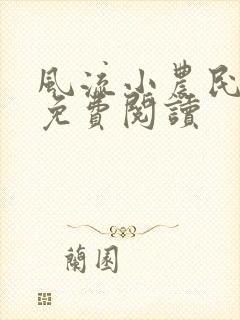 風流小農民
免費閱讀
蘭園